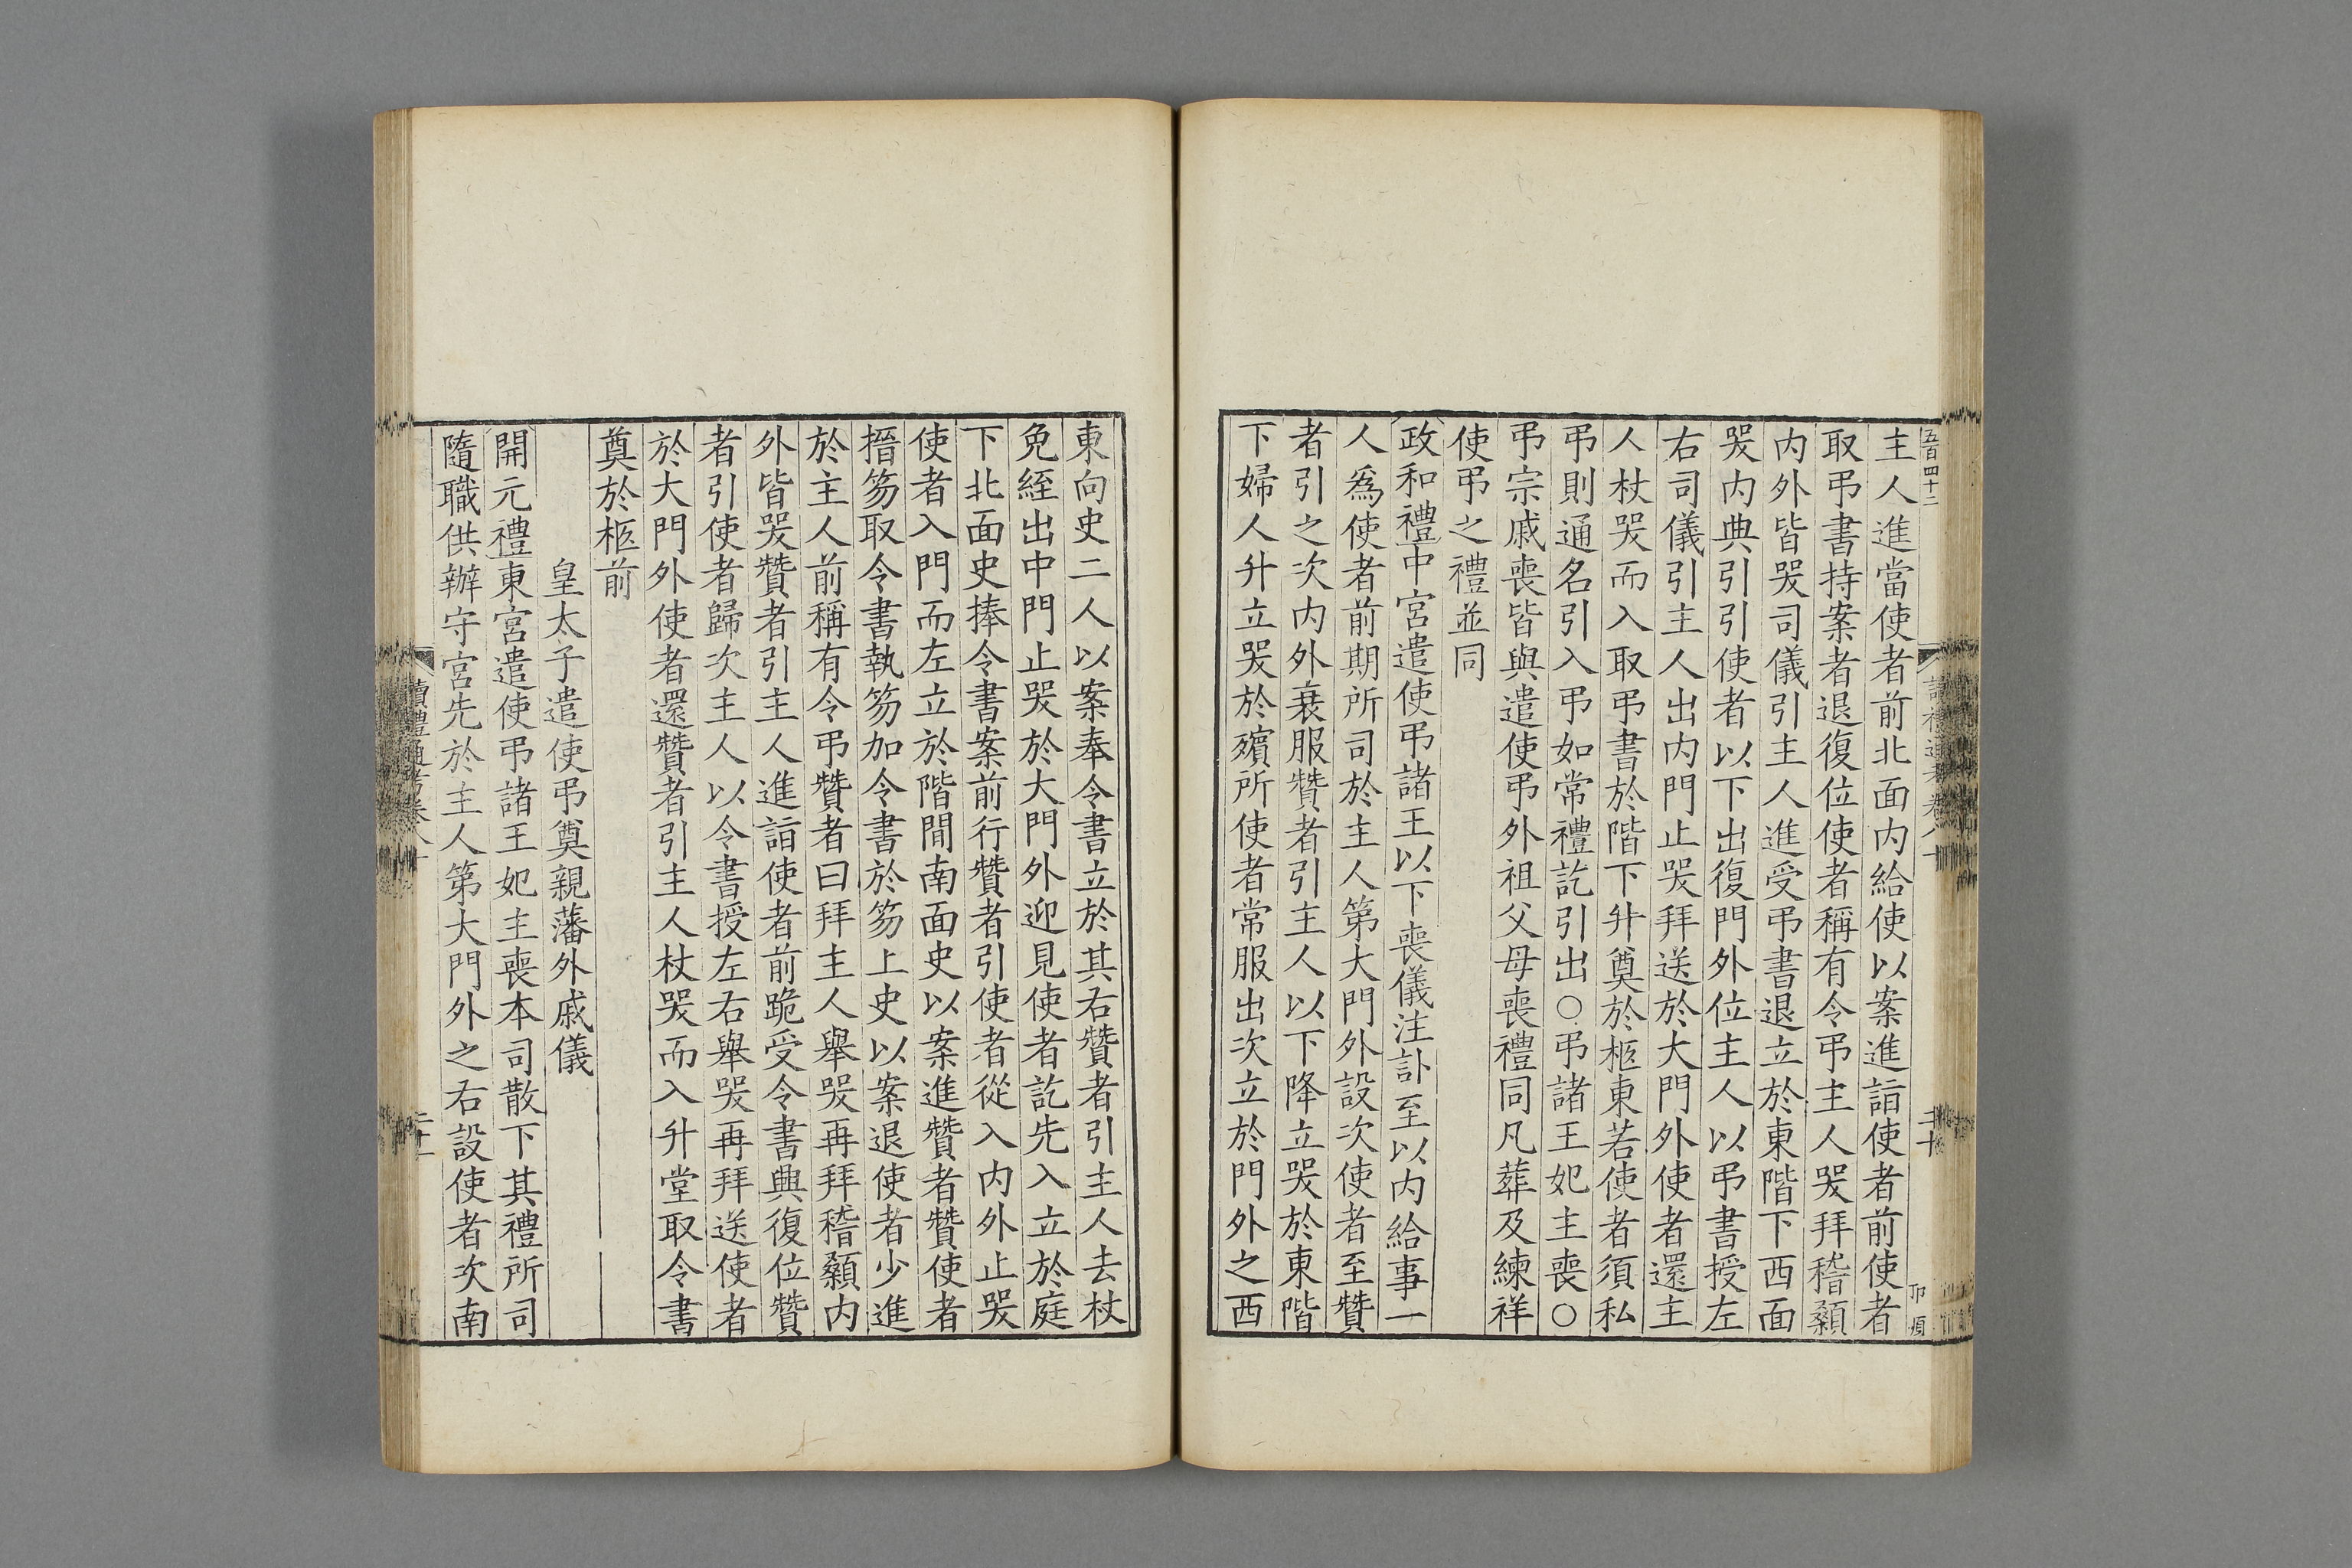 五百四十二
主人進當使者前北面内給使以案進詣使者前使者
取弔書持案者退復位使者稱有令弔主人哭拜稽顙
内外皆哭司儀引主人進受弔書退立於東階下西面
哭内典引引使者以下出復門外位主人以弔書授左
右司儀引主人出内門止哭拜送於大門外使者還主
人杖哭而入取弔書於階下升奠於柩東若使者須私
弔則通名引入弔如常禮訖引出○弔諸王妃主喪○
弔宗戚喪皆與遣使弔外祖父母喪禮同凡葬及練祥
使弔之禮並同
政和禮中宮遣使弔諸王以下喪儀注訃至以内給事一
人為使者前期所司於主人第大門外設次使者至贊
者引之次内外衰服贊者引主人以下降立哭於東階
下婦人升立哭於殯所使者常服出次立於門外之西
東向史二人以案奉令書立於其右贊者引主人去杖
免絰出中門止哭於大門外迎見使者訖先入立於庭
下北面史捧令書案前行贊者引使者從入内外止哭
使者入門而左立於階間南面史以案進贊者贊使者
搢笏取令書執笏加令書於笏上史以案退使者少進
於主人前稱有令弔贊者曰拜主人舉哭再拜稽顙内
外皆哭贊者引主人進詣使者前跪受令書興復位贊
者引使者歸次主人以令書授左右舉哭再拜送使者
於大門外使者還贊者引主人杖哭而入升堂取令書
奠於柩前
皇太子遣使弔奠親藩外戚儀
開元禮東宮遣使弔諸王妃主喪本司散下其禮所司
隨職供辦守宮先於主人第大門外之右設使者次南
讀禮通考卷八十
二十一